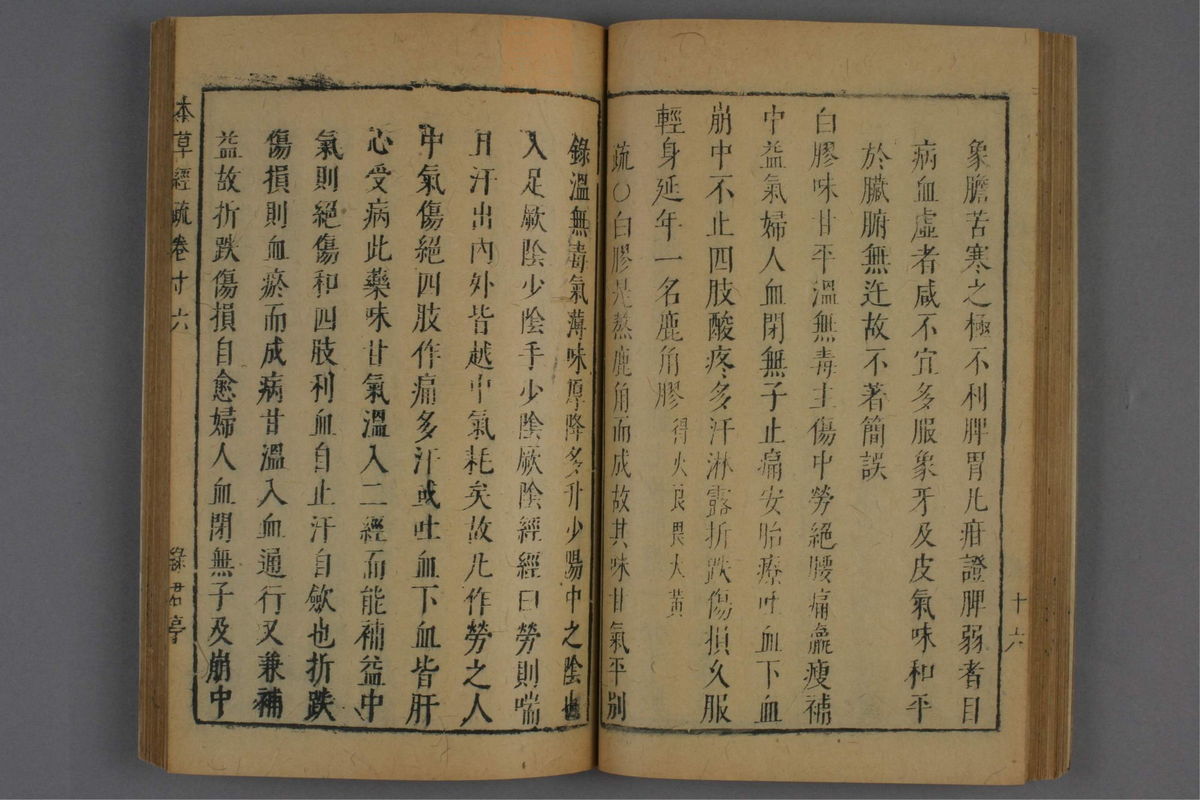 象膽苦寒之極不利脾胃凡疳證脾弱者目
病血虛者咸不宜多服象牙及皮氣味和平
於臟腑無迕故不著簡誤
白膠味甘平溫無毒主傷中勞絕腰痛羸瘦補
中益氣婦人血閉無子止痛安胎療吐血下血
崩中不止四肢酸疼多汗淋露折跌傷損久服
輕身延年一名鹿角膠得火良畏大黃
疏○白膠是熬鹿角而成故其味甘氣平別
十六
錄溫無毒氣薄味厚降多升少陽中之陰也
入足厥陰少陰手少陰厥陰經經曰勞則喘
且汗出內外皆越中氣耗矣故凡作勞之人
中氣傷絕四肢作痛多汗或吐血下血皆肝
心受病此藥味甘氣溫入二經而能補益中
氣則絕傷和四肢利血自止汗自歛也折跌
傷損則血瘀而成病甘溫入血通行又兼補
益故折跌傷損自愈婦人血閉無子及崩中
本草經疏卷十六
綠君亭